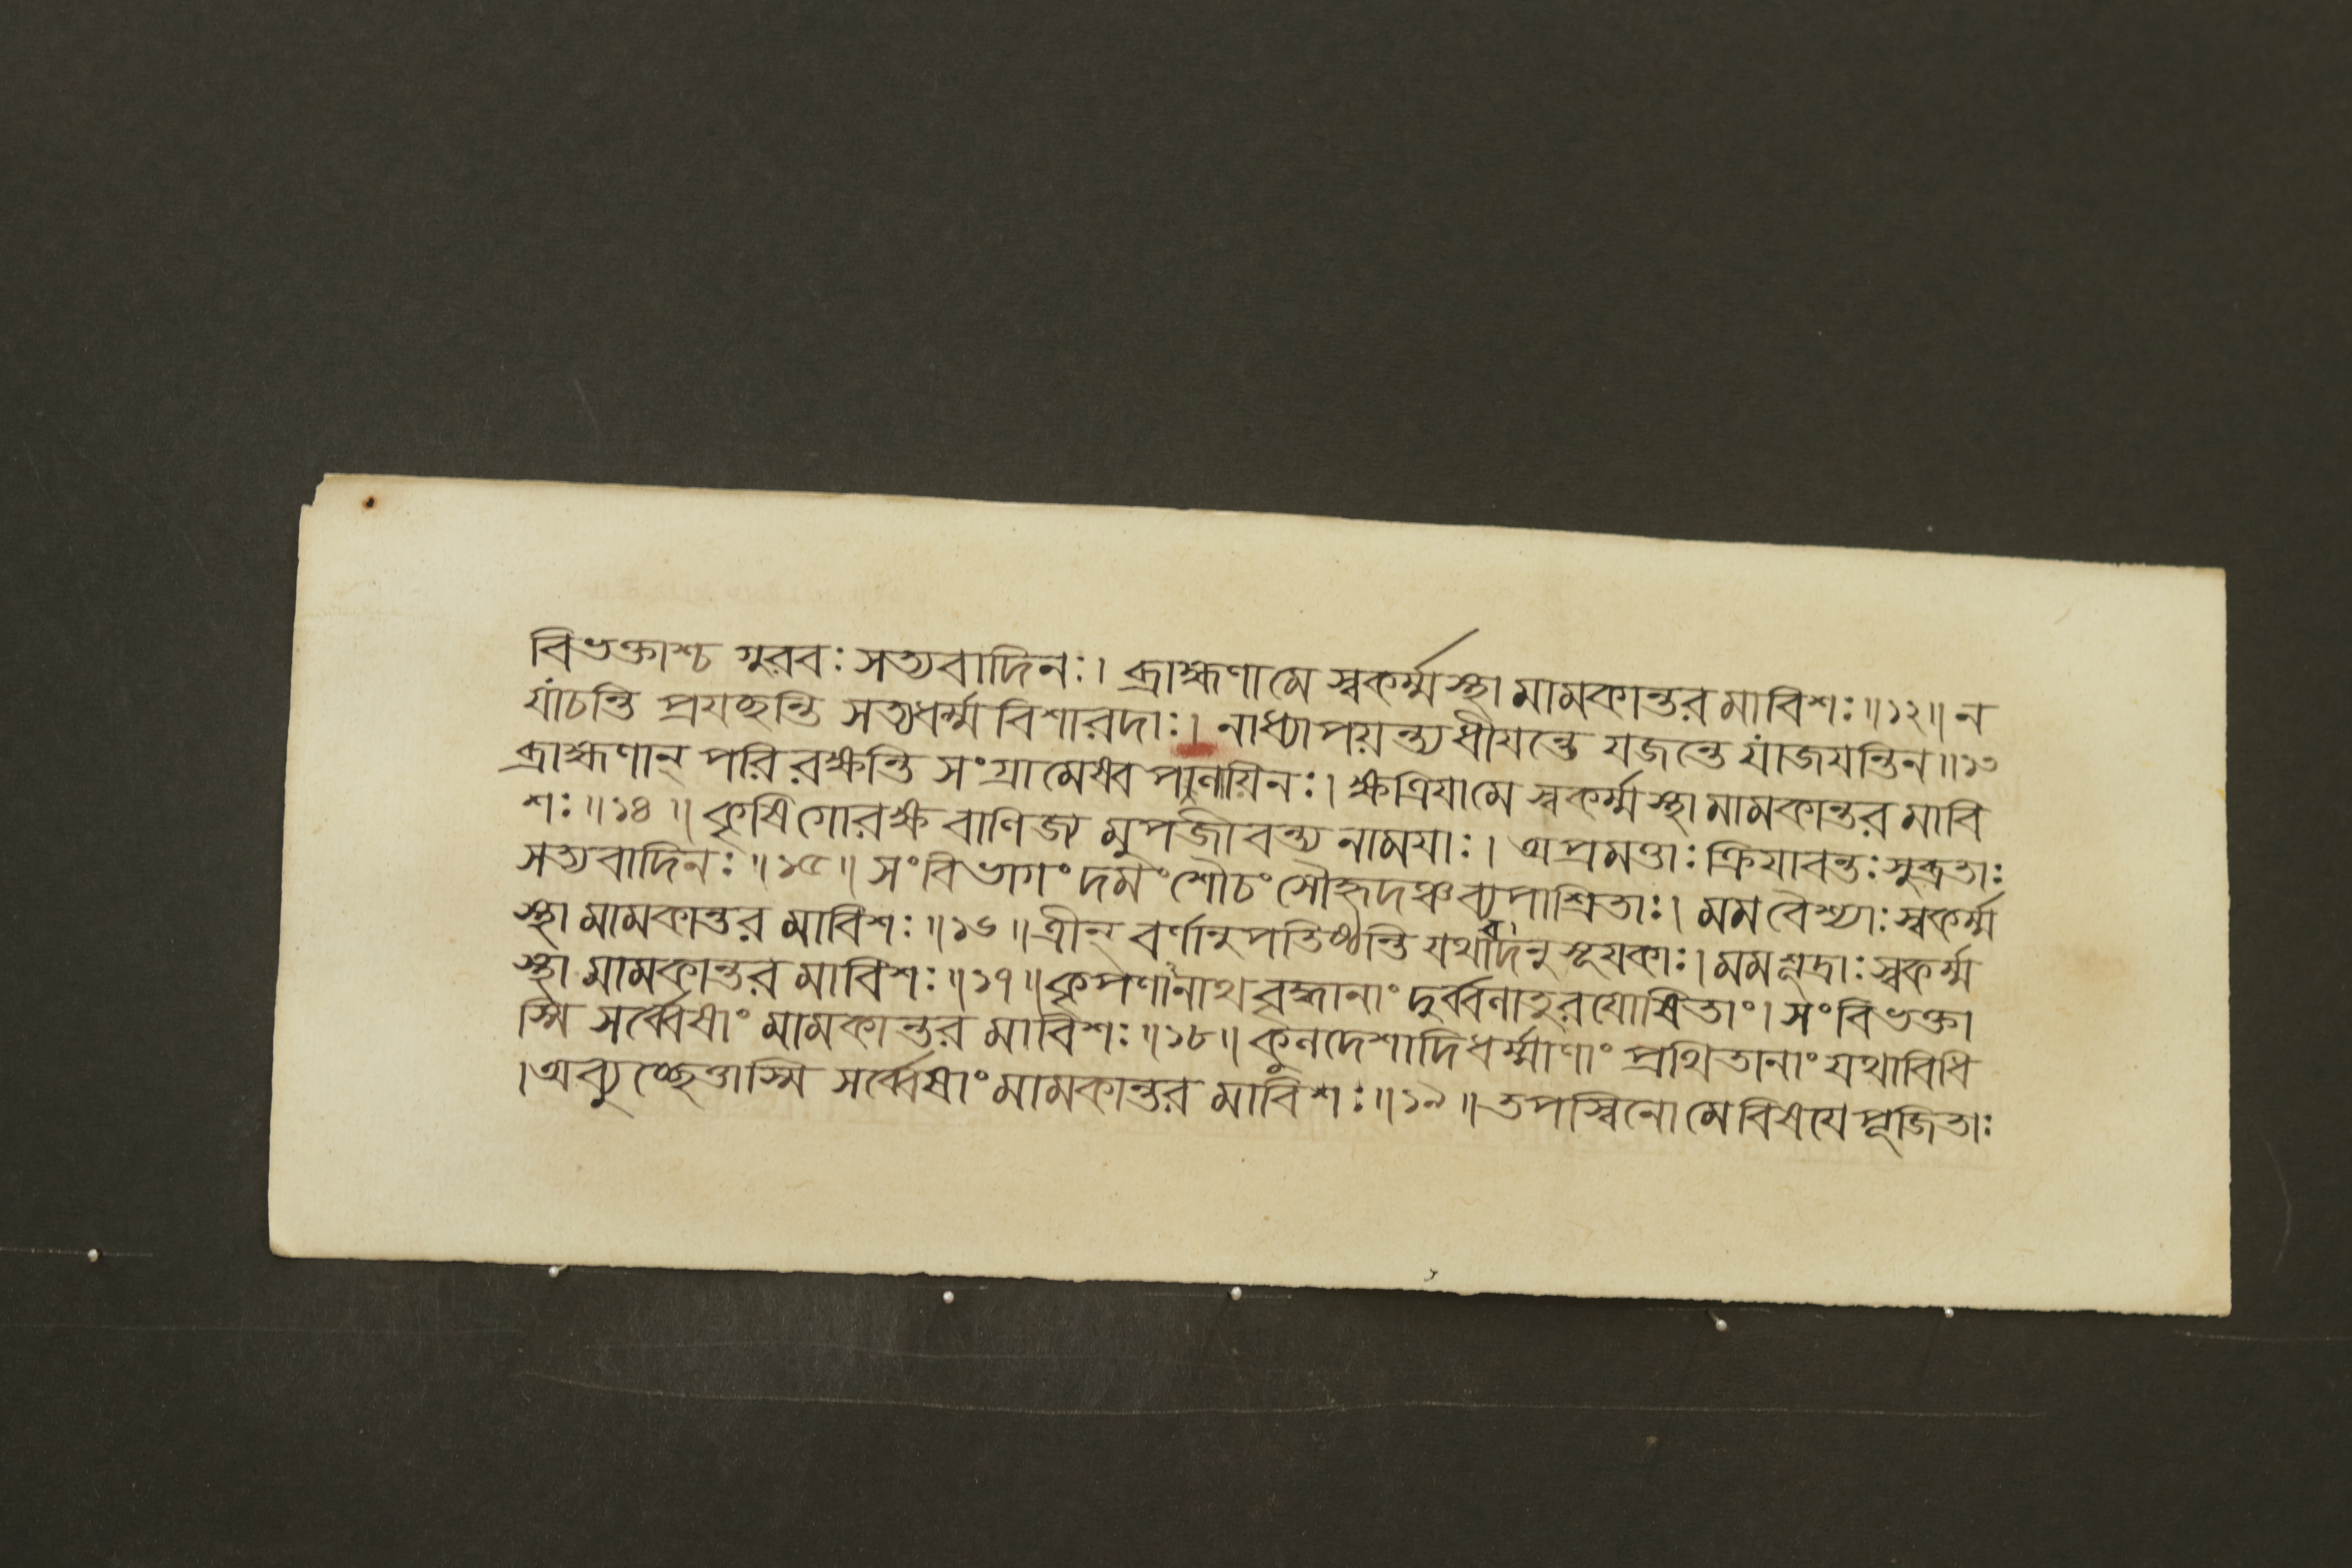 বিভক্তাশ্চ গুরবঃ সত্যবাদিনঃ। ব্রাহ্মণামে স্বকর্ম্মস্থা মামকান্তর মাবিশঃ॥১২॥ ন
যাচন্তি প্রযচ্ছন্তি সত্যধর্ম্ম বিশারদাঃ। নাধ্যাপয়ন্ত্যধীযন্তে যজন্তে যাজযন্তিন॥১৩
ব্রাহ্মণান্ পরি রক্ষন্তি সংগ্রামেষ্বপলায়িনঃ। ক্ষত্রিযামে স্বকর্ম্মস্থা মামকান্তর মাবি
শঃ॥১৪॥ কৃষিগোরক্ষ বাণিজ্য মুপজীবন্ত্য নামযাঃ। অপ্রমত্তাঃ ক্রিযাবন্তঃ সুব্রতাঃ
সত্যবাদিনঃ॥১৫॥ সংবিভাগং দমং শৌচং সৌহৃদঞ্চ ব্যপাশ্রিতাঃ। মম বৈশ্যাঃ স্বকর্ম্ম
স্থা মামকান্তর মাবিশঃ॥১৬॥ ত্রীন্ বর্ণানুপতিষ্ঠন্তি যথাবদনুসূযকাঃ। মম শূদ্রাঃ স্বকর্ম্ম
স্থা মামকান্তর মাবিশঃ॥১৭॥ কৃপণানাথ বৃদ্ধানাং দুর্ব্বলাতুরযোষিতাং। সংবিভক্তা
স্মি সর্ব্বেষাং মামকান্তর মাবিশঃ॥১৮॥ কুলদেশাদিধর্ম্মাণাং প্রথিতানাং যথাবিধি
।অব্যুচ্ছেত্তাস্মি সর্ব্বেষাং মামকান্তর মাবিশঃ॥১৯॥ তপস্বিনো মে বিষযে পূজিতাঃ